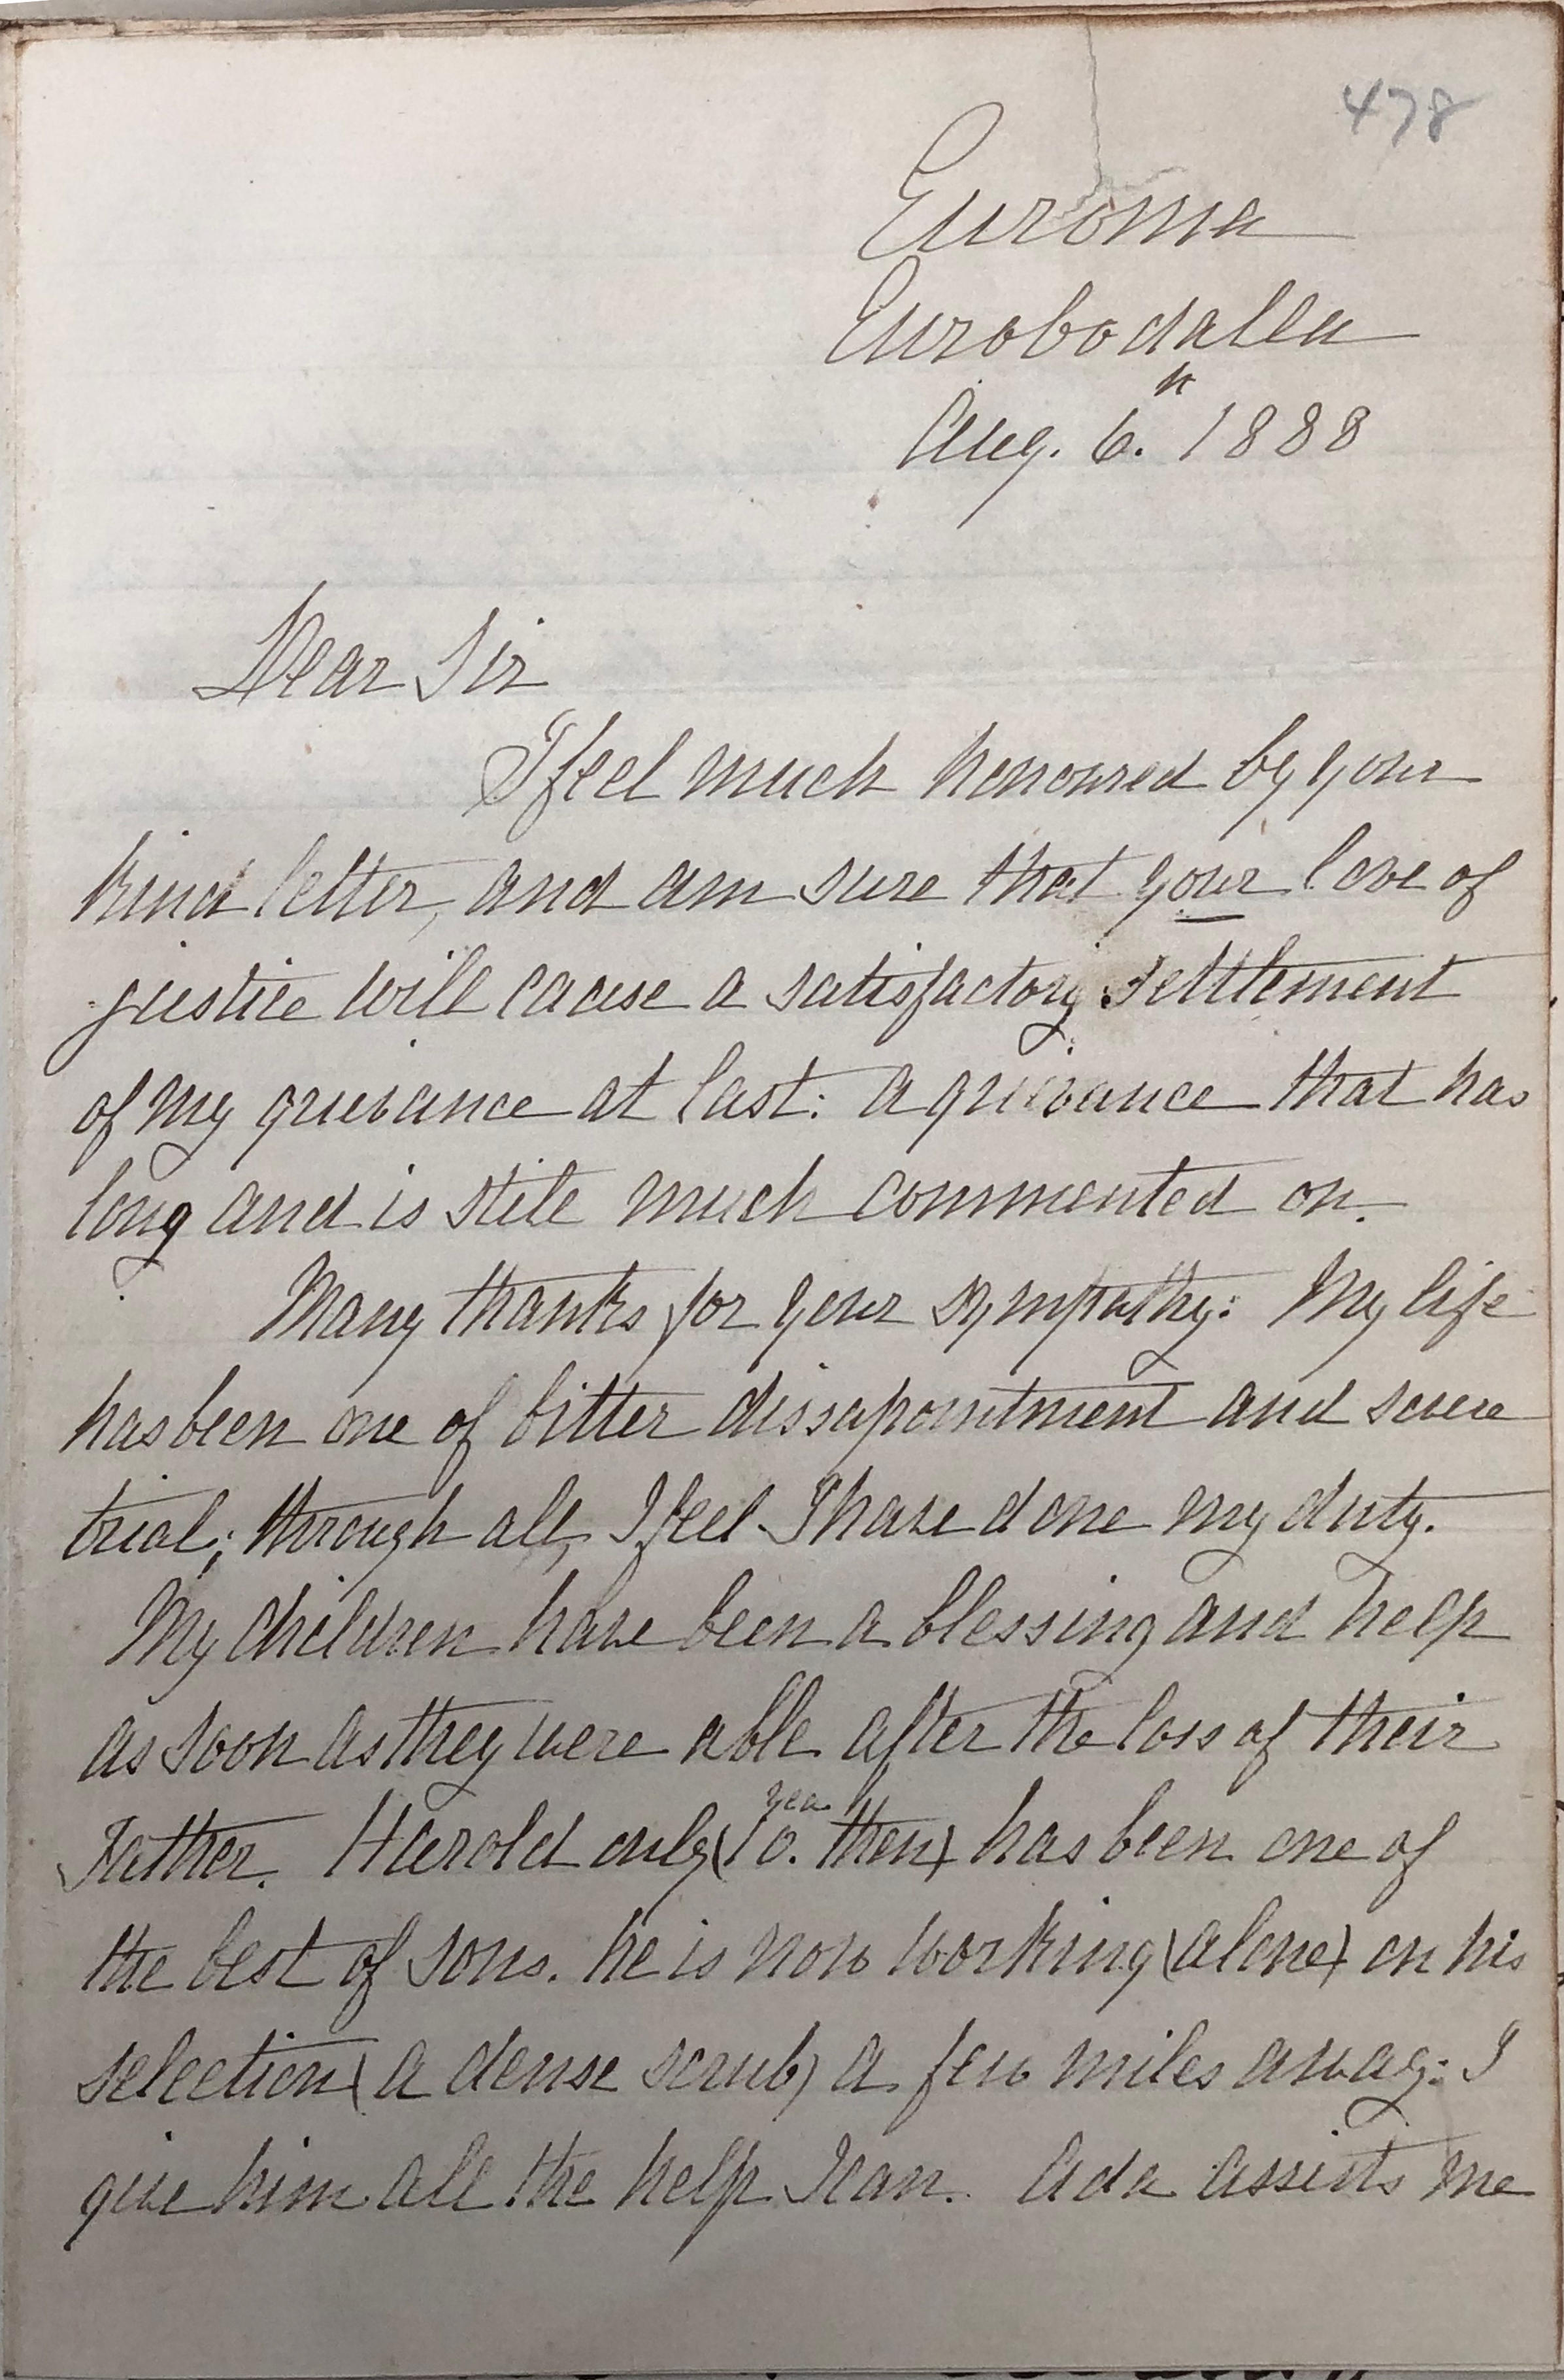 478
Euroma
Eurobodalla
Aug. 6.th 1888
Dear Sir
I feel much honoured by your
kind letter, and am sure that your love of
justice will cause a satisfactory settlement
of my grievance at last: a grievance that has
long and is still much commented on.
Many thanks for your sympathy: My life
has been one of bitter dissapointment and severe
trial; through all, I feel I have done my duty.
My children have been a blessing and help
as soon as they were able after the loss of their
Father. Harold only (10. yea. then) has been one of
the best of sons. he is now working (alone) on his
selection (a dense scrub) a few miles away: I
give him all the help I can. Ada assists me